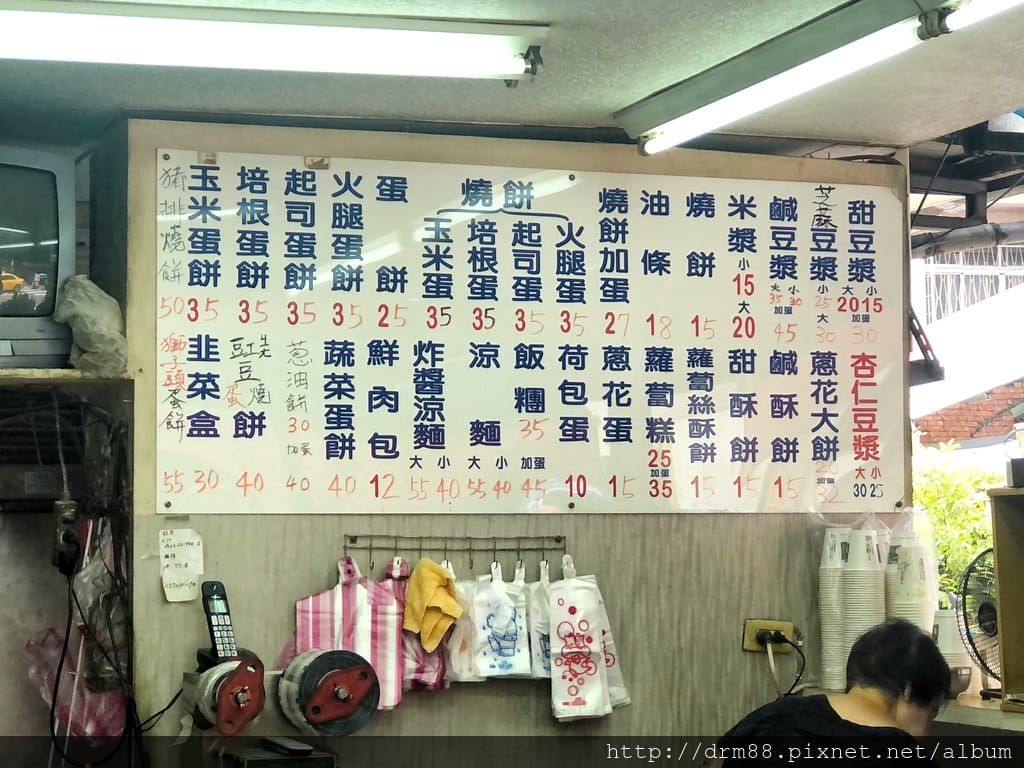 甜豆漿 大 小 2015 加蛋 30
芝麻豆漿 小 25 大 30
鹹豆漿 大 小 35 30 加蛋 45
米漿 小 15 大 20
燒餅 15
油條 18
燒餅加蛋 27
燒餅
火腿蛋 35
起司蛋 35
培根蛋 35
玉米蛋 35
蛋餅 25
火腿蛋餅 35
起司蛋餅 35
培根蛋餅 35
玉米蛋餅 35
豬排燒餅 50
杏仁豆漿 大 小 30 25
蔥花大餅 20 加蛋 32
鹹酥餅 15
甜酥餅 15
蘿蔔絲酥餅 15
蘿蔔糕 25 加蛋 35
蔥花蛋 15
荷包蛋 10
飯糰 35 加蛋 45
涼麵 大 小 55 40
炸醬涼麵 大 小 55 40
鮮肉包 12
蔬菜蛋餅 40
蔥油餅 30 加蛋 40
豆蛋燒餅 40
韭菜盒 30
獅子頭蛋餅 55
http://drm88.pixnet.net/album